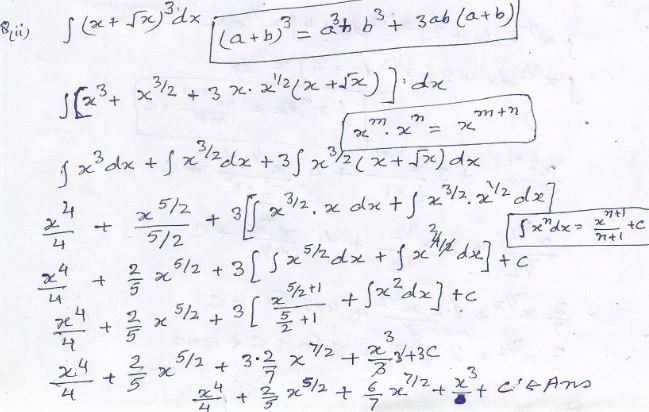 8(ii) ∫(x + √x)³ dx (a+b)³ = a³ + b³ + 3ab(a+b)
∫[x³ + x^{3/2} + 3 x. x^{1/2}(x + √x)]. dx
x^m . x^n = x^{m+n}
∫x³dx + ∫x^{3/2}dx + 3∫x^{3/2}(x + √x)dx
x⁴/4 + x^{5/2}/5/2 + 3[∫x^{3/2}. x dx + ∫x^{3/2}. x^{1/2} dx]
∫xⁿdx = x^{n+1}/n+1 + c
x⁴/4 + 2/5 x^{5/2} + 3[∫x^{5/2}dx + ∫x² dx] + c
x⁴/4 + 2/5 x^{5/2} + 3[x^{5/2+1}/(5/2 +1) + ∫x²dx] + c
x⁴/4 + 2/5 x^{5/2} + 3·2/7 x^{7/2} + x³/3·3 + 3C
x⁴/4 + 2/5 x^{5/2} + 6/7 x^{7/2} + x³ + C' ← Ans